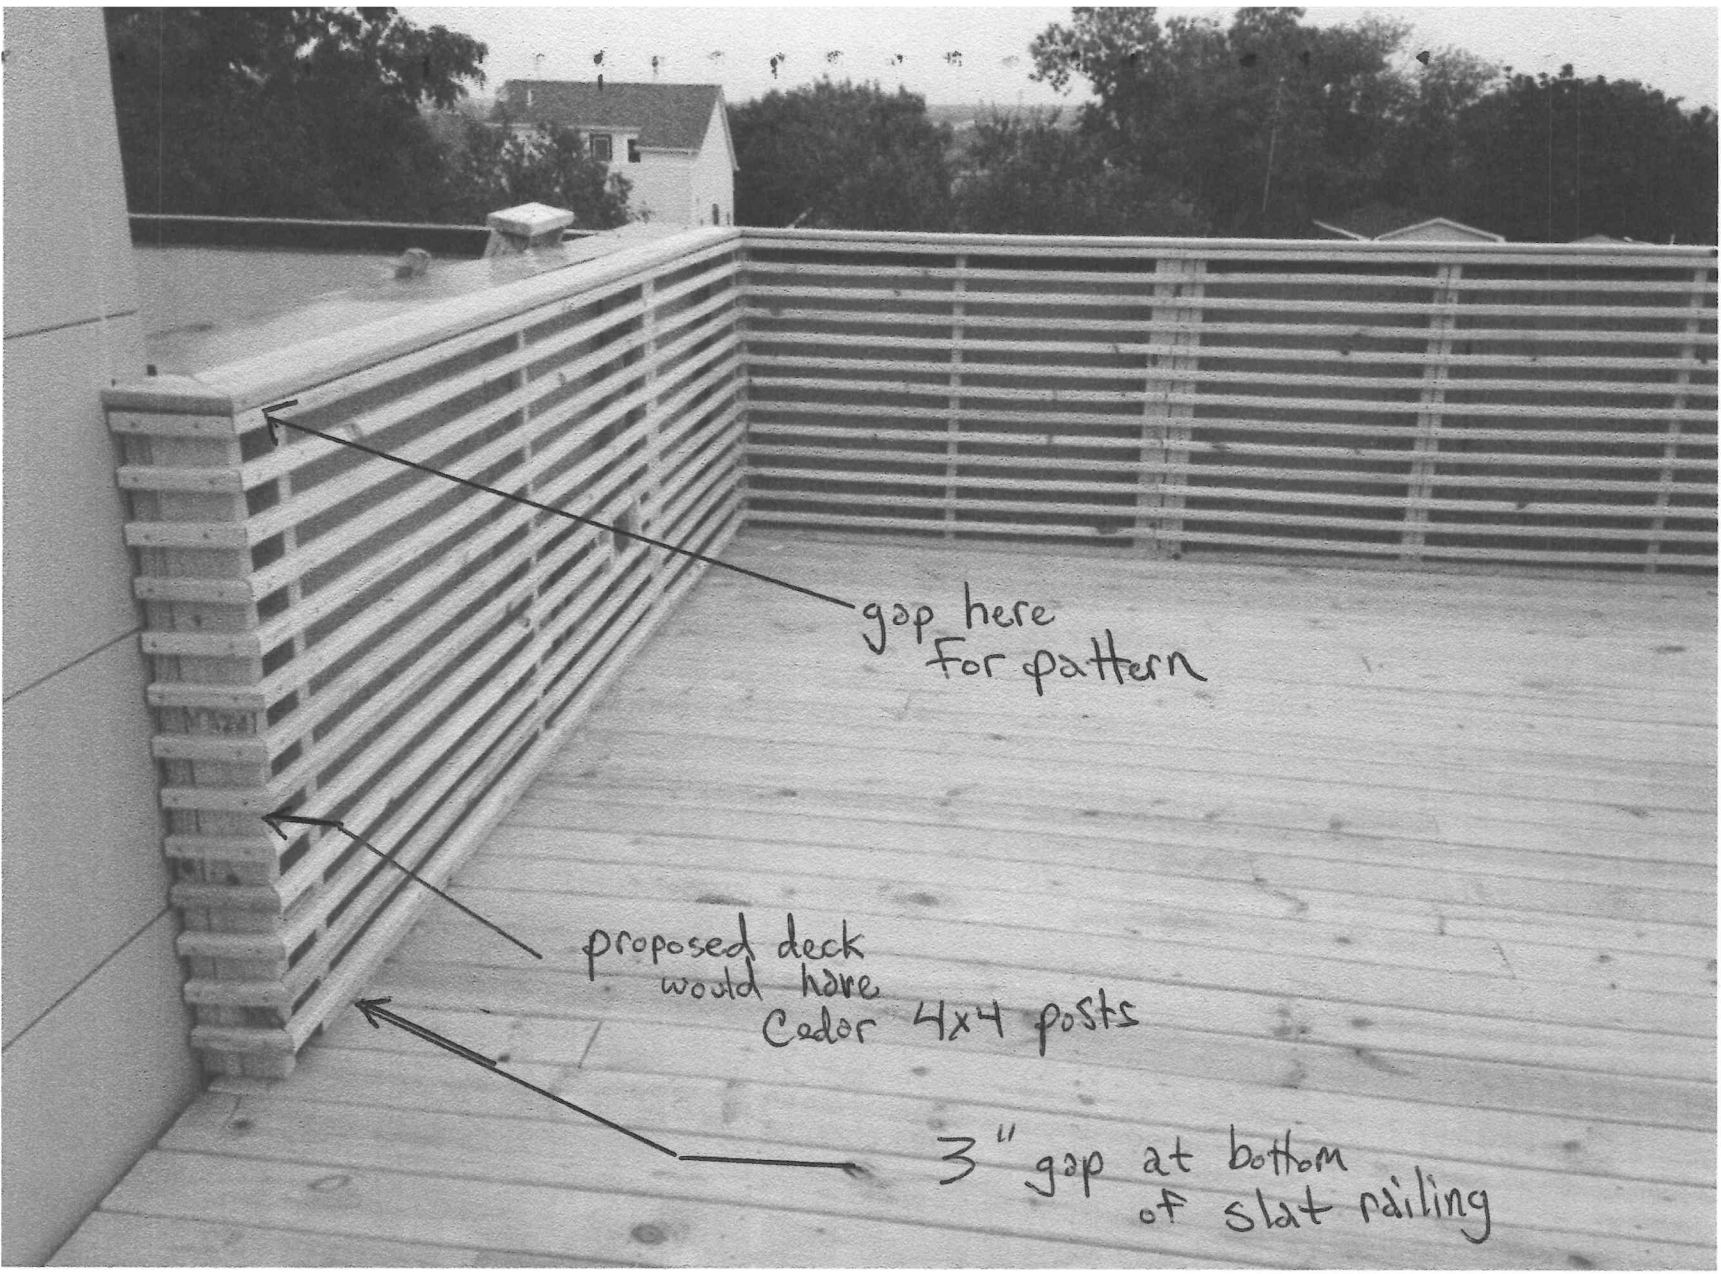 gap here
for pattern
proposed deck
would have
Cedar 4x4 posts
3" gap at bottom
of slat railing